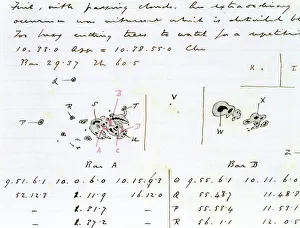 Fine, with passing clouds. An extraordinary
occurrence was witnessed which is detailed be
For busy cutting trees to watch for a repetition
10.38.0 App = 10.38.55.0 Chr
Bar 29.37 Th 60.5
K. I
Q
B D
R S T
P
V
X
W
A C U
Z
Bar A Bar B
9.51.6.1 10.0.6.0 10.15.9.3 O 9.55.6.1 10.11.6.0
52.12.3 2.11.9 16.12.0 Q 55.48.7 11.48.3
– 2.31.7 – P 55.58.4 11.53.1
– 2.37.2 – R 56.1.1 12.0.5